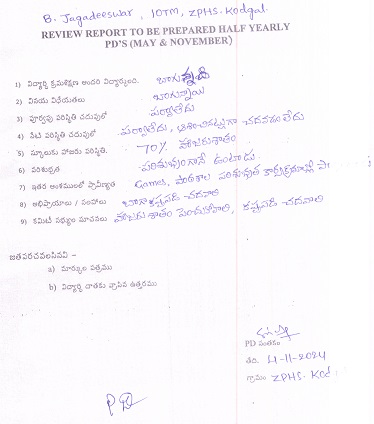 B. Jagadeeswar, 10TM, ZPHS. Kodgal.
REVIEW REPORT TO BE PREPARED HALF YEARLY
PD'S (MAY & NOVEMBER)
1) విద్యార్థి క్రమశిక్షణ అందరి విద్యార్థులది. బాగున్నది
2) వినయ విధేయతలు బాగున్నాయి
3) పూర్వపు పరిస్థితి చదువులో పర్వాలేదు
4) నేటి పరిస్థితి చదువులో పర్వాలేదు, ఆశించినట్లుగా చదవడం లేదు
5) స్కూలుకు హాజరు పరిస్థితి. 70% హాజరుశాతం
6) పరిశుభ్రత పరిశుభ్రంగానే ఉంటాడు.
7) ఇతర అంశములలో ప్రావీణ్యత Games, పాఠశాల పరిశుభ్రత కార్యక్రమాల్లో
8) అభిప్రాయాలు / సలహాలు బాగా కష్టపడి చదవాలి
9) కమిటీ సభ్యుల సూచనలు హాజరుశాతం పెంచుకోవాలి, కష్టపడి చదవాలి
జతపరచవలసినవి –
a) మార్కుల పత్రము
b) విద్యార్థి చాతకు వ్రాసిన ఉత్తరము
PD సంతకం
తేది. 21-11-2024
గ్రామం ZPHS. Kod
PD